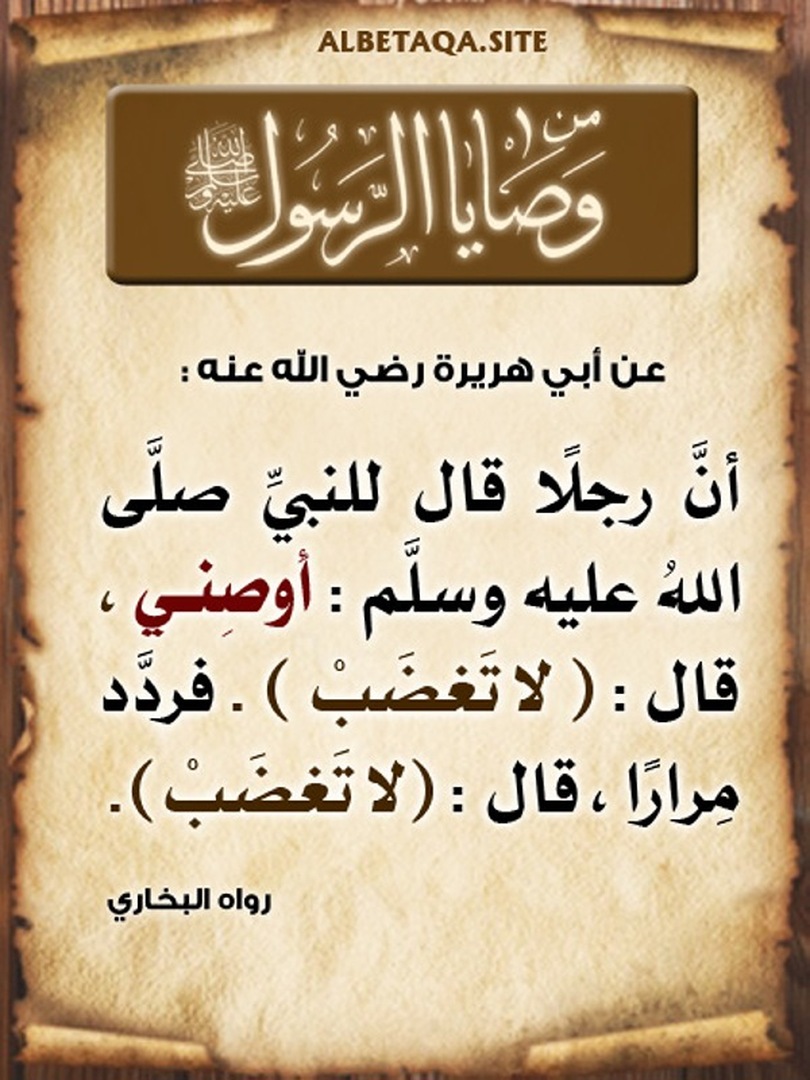 ALBETAQA.SITE
من وصايا الرسول صلى الله عليه وسلم
عن أبي هريرة رضي الله عنه :
أنَّ رجلًا قال للنبيِّ صلَّى
اللهُ عليه وسلَّم : أوصِني ،
قال : ( لا تَغضَبْ ) . فردَّد
مِرارًا ، قال : (لا تَغضَبْ).
رواه البخاري